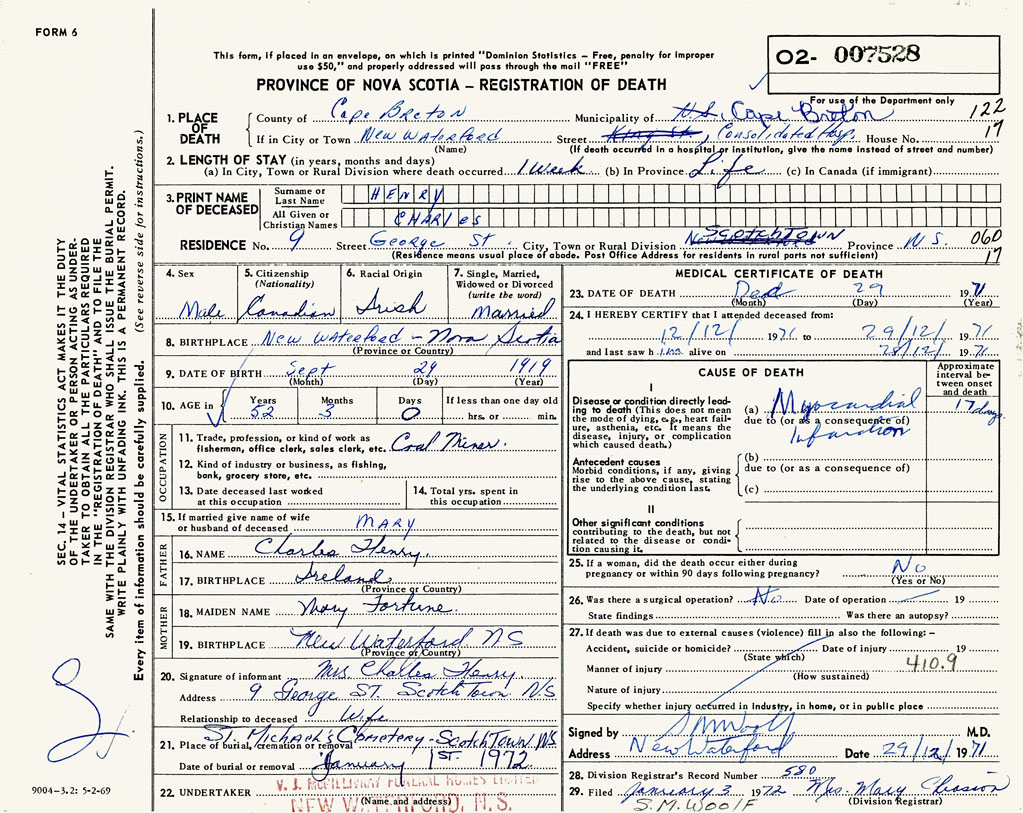 FORM 6
This form, if placed in an envelope, on which is printed "Dominion Statistics – Free, penalty for improper
use $50," and properly addressed will pass through the mail "FREE"
PROVINCE OF NOVA SCOTIA – REGISTRATION OF DEATH
02- 007528
For use of the Department only
1. PLACE OF DEATH
County of Cape Breton Municipality of Cape Breton 122
If in City or Town New Waterford Street King St, Consolidated Hosp. House No. 17
(Name) (If death occurred in a hospital or institution, give the name instead of street and number)
2. LENGTH OF STAY (in years, months and days)
(a) In City, Town or Rural Division where death occurred 1 Week (b) In Province Life (c) In Canada (if immigrant)
3. PRINT NAME OF DECEASED
Surname or Last Name HENRY
All Given or Christian Names CHARLes
RESIDENCE No. 9 Street George St. City, Town or Rural Division SCOTCHTOWN Province N.S. 060
(Residence means usual place of abode. Post Office Address for residents in rural parts not sufficient) 17
4. Sex Male
5. Citizenship (Nationality) Canadian
6. Racial Origin Irish
7. Single, Married, Widowed or Divorced (write the word) Married
8. BIRTHPLACE New Waterford – Nova Scotia
(Province or Country)
9. DATE OF BIRTH Sept 29 1919
(Month) (Day) (Year)
10. AGE in Years 52 Months 3 Days 0 If less than one day old hrs. or min.
OCCUPATION
11. Trade, profession, or kind of work as
fisherman, office clerk, sales clerk, etc. Coal Miner.
12. Kind of industry or business, as fishing,
bank, grocery store, etc.
13. Date deceased last worked
at this occupation
14. Total yrs. spent in
this occupation
15. If married give name of wife
or husband of deceased MARY
FATHER
16. NAME Charles Henry.
17. BIRTHPLACE Ireland
(Province or Country)
MOTHER
18. MAIDEN NAME Mary Fortune.
19. BIRTHPLACE New Waterford NS
(Province or Country)
20. Signature of informant Mrs. Charles Henry.
Address 9 George ST. Scotch Town N/S
Relationship to deceased Wife
21. Place of burial, cremation or removal St. Michael's Cemetery – ScotchTown NS
Date of burial or removal January 1ST. 1972
22. UNDERTAKER V. J. McGILLIVRAY FUNERAL HOMES LIMITED
(Name and address) NEW WATERFORD, N.S.
MEDICAL CERTIFICATE OF DEATH
23. DATE OF DEATH Dec 29 1971
(Month) (Day) (Year)
24. I HEREBY CERTIFY that I attended deceased from:
12/12/ 1971 to 29/12/ 1971
and last saw him alive on 28/12/ 1971
CAUSE OF DEATH
Approximate interval between onset and death
I
Disease or condition directly leading to death (This does not mean
the mode of dying, e.g., heart failure,
asthenia, etc. It means the
disease, injury, or complication
which caused death.)
(a) Myocardial 17 days
due to (or as a consequence of)
Infarction
Antecedent causes
Morbid conditions, if any, giving
rise to the above cause, stating
the underlying condition last.
(b)
due to (or as a consequence of)
(c)
II
Other significant conditions
contributing to the death, but not
related to the disease or condition
causing it.
25. If a woman, did the death occur either during
pregnancy or within 90 days following pregnancy? No
(Yes or No)
26. Was there a surgical operation? No Date of operation 19
State findings Was there an autopsy?
27. If death was due to external causes (violence) fill in also the following: –
Accident, suicide or homicide? Date of injury 19
(State which)
Manner of injury 410.9
(How sustained)
Nature of injury
Specify whether injury occurred in industry, in home, or in public place
Signed by S M Woolf M.D.
Address New Waterford Date 29/12/1971
28. Division Registrar's Record Number 580
29. Filed January 3 1972 Mrs. Mary Chiasson
(Division Registrar)
S.M. WOOLF
SEC. 14 – VITAL STATISTICS ACT MAKES IT THE DUTY
OF THE UNDERTAKER OR PERSON ACTING AS UNDERTAKER
TO OBTAIN ALL THE PARTICULARS REQUIRED
IN THE "REGISTRATION OF DEATH" AND TO FILE THE
SAME WITH THE DIVISION REGISTRAR WHO SHALL ISSUE THE BURIAL PERMIT.
WRITE PLAINLY WITH UNFADING INK. THIS IS A PERMANENT RECORD.
Every item of information should be carefully supplied. (See reverse side for instructions.)
9004-3.2: 5-2-69